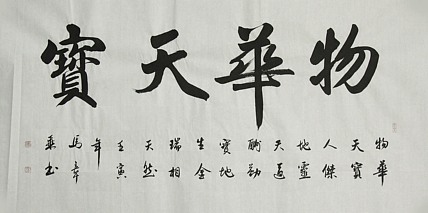 物華天寶
物華
天寶
人傑
地靈
天道
酬勤
寶地
生金
瑞相
天然
壬寅
年
馬
书